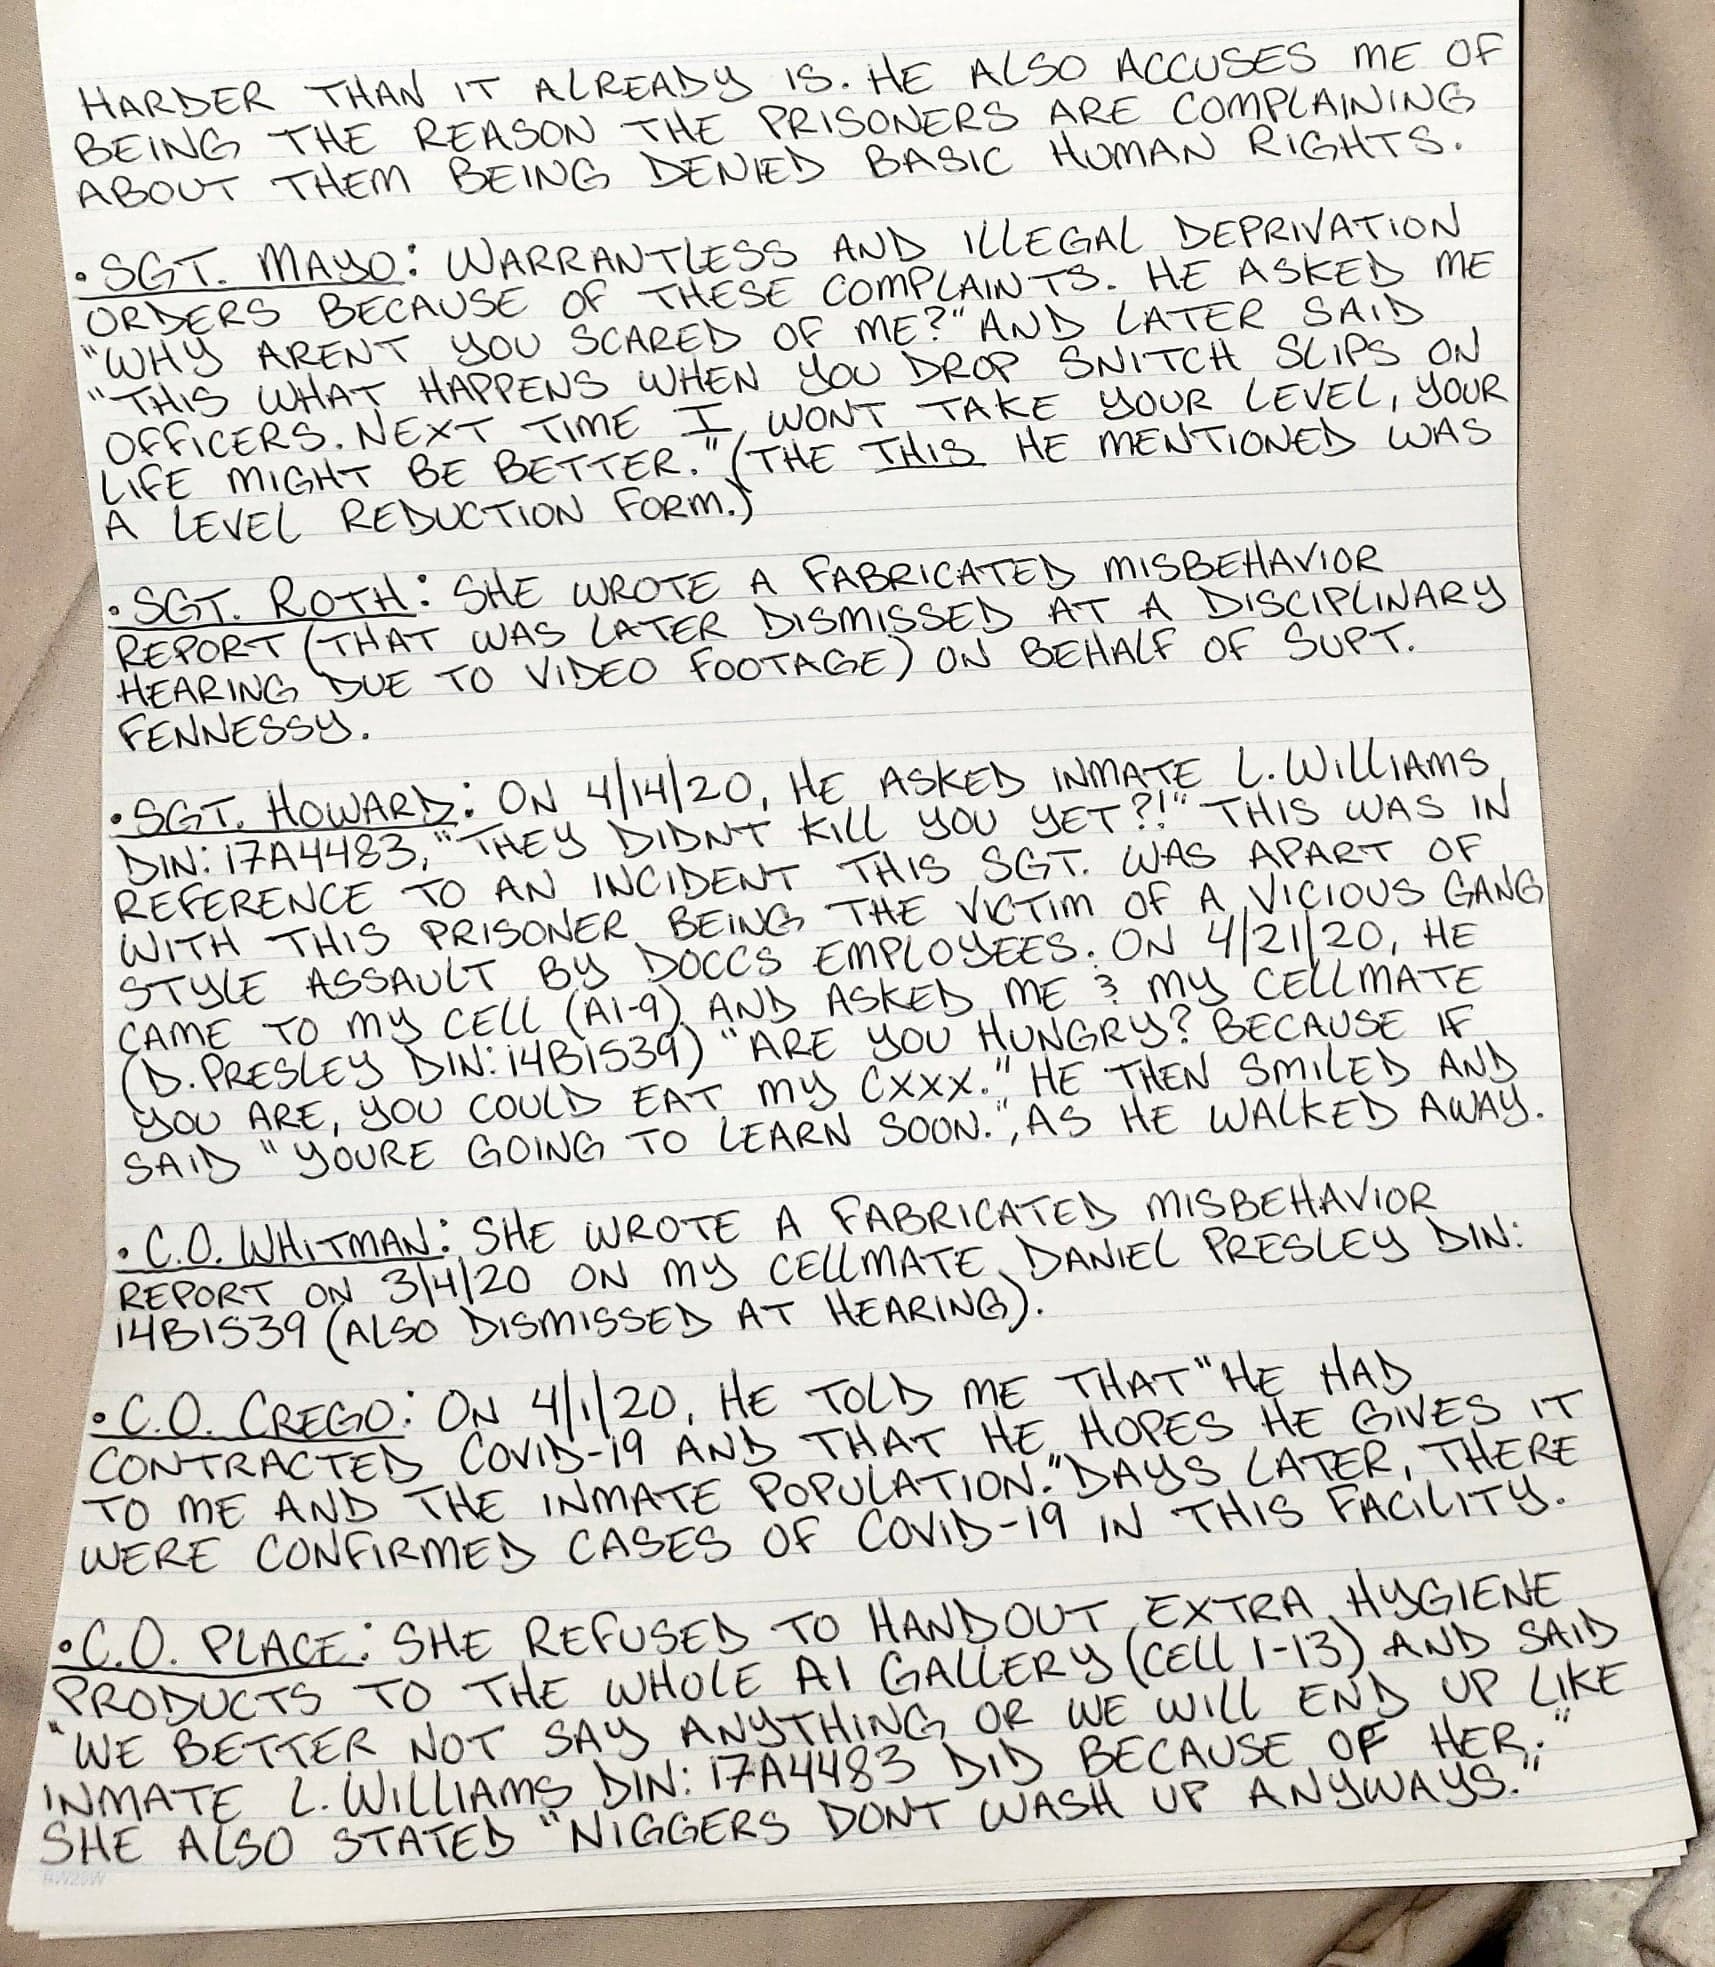 HARDER THAN IT ALREADY IS. HE ALSO ACCUSES ME OF
BEING THE REASON THE PRISONERS ARE COMPLAINING
ABOUT THEM BEING DENIED BASIC HUMAN RIGHTS.
• SGT. MAYO: WARRANTLESS AND ILLEGAL DEPRIVATION
ORDERS BECAUSE OF THESE COMPLAINTS. HE ASKED ME
"WHY ARENT YOU SCARED OF ME?" AND LATER SAID
"THIS WHAT HAPPENS WHEN YOU DROP SNITCH SLIPS ON
OFFICERS. NEXT TIME I WONT TAKE YOUR LEVEL, YOUR
LIFE MIGHT BE BETTER." (THE THIS HE MENTIONED WAS
A LEVEL REDUCTION FORM.)
• SGT. ROTH: SHE WROTE A FABRICATED MISBEHAVIOR
REPORT (THAT WAS LATER DISMISSED AT A DISCIPLINARY
HEARING DUE TO VIDEO FOOTAGE) ON BEHALF OF SUPT.
FENNESSY.
• SGT. HOWARD: ON 4/14/20, HE ASKED INMATE L. WILLIAMS
DIN: 17A4483, "THEY DIDNT KILL YOU YET?!" THIS WAS IN
REFERENCE TO AN INCIDENT THIS SGT. WAS APART OF
WITH THIS PRISONER BEING THE VICTIM OF A VICIOUS GANG
STYLE ASSAULT BY DOCCS EMPLOYEES. ON 4/21/20, HE
CAME TO MY CELL (A1-9) AND ASKED ME & MY CELLMATE
(D. PRESLEY DIN: 14B1539) "ARE YOU HUNGRY? BECAUSE IF
YOU ARE, YOU COULD EAT MY CXXX." HE THEN SMILED AND
SAID "YOURE GOING TO LEARN SOON.", AS HE WALKED AWAY.
• C.O. WHITMAN: SHE WROTE A FABRICATED MISBEHAVIOR
REPORT ON 3/4/20 ON MY CELLMATE, DANIEL PRESLEY DIN:
14B1539 (ALSO DISMISSED AT HEARING).
• C.O. CREGO: ON 4/1/20, HE TOLD ME THAT "HE HAD
CONTRACTED COVID-19 AND THAT HE HOPES HE GIVES IT
TO ME AND THE INMATE POPULATION." DAYS LATER, THERE
WERE CONFIRMED CASES OF COVID-19 IN THIS FACILITY.
• C.O. PLACE: SHE REFUSED TO HANDOUT EXTRA HYGIENE
PRODUCTS TO THE WHOLE A1 GALLERY (CELL 1-13) AND SAID
"WE BETTER NOT SAY ANYTHING OR WE WILL END UP LIKE
INMATE L. WILLIAMS DIN: 17A4483 DID BECAUSE OF HER;"
SHE ALSO STATED "NIGGERS DONT WASH UP ANYWAYS."